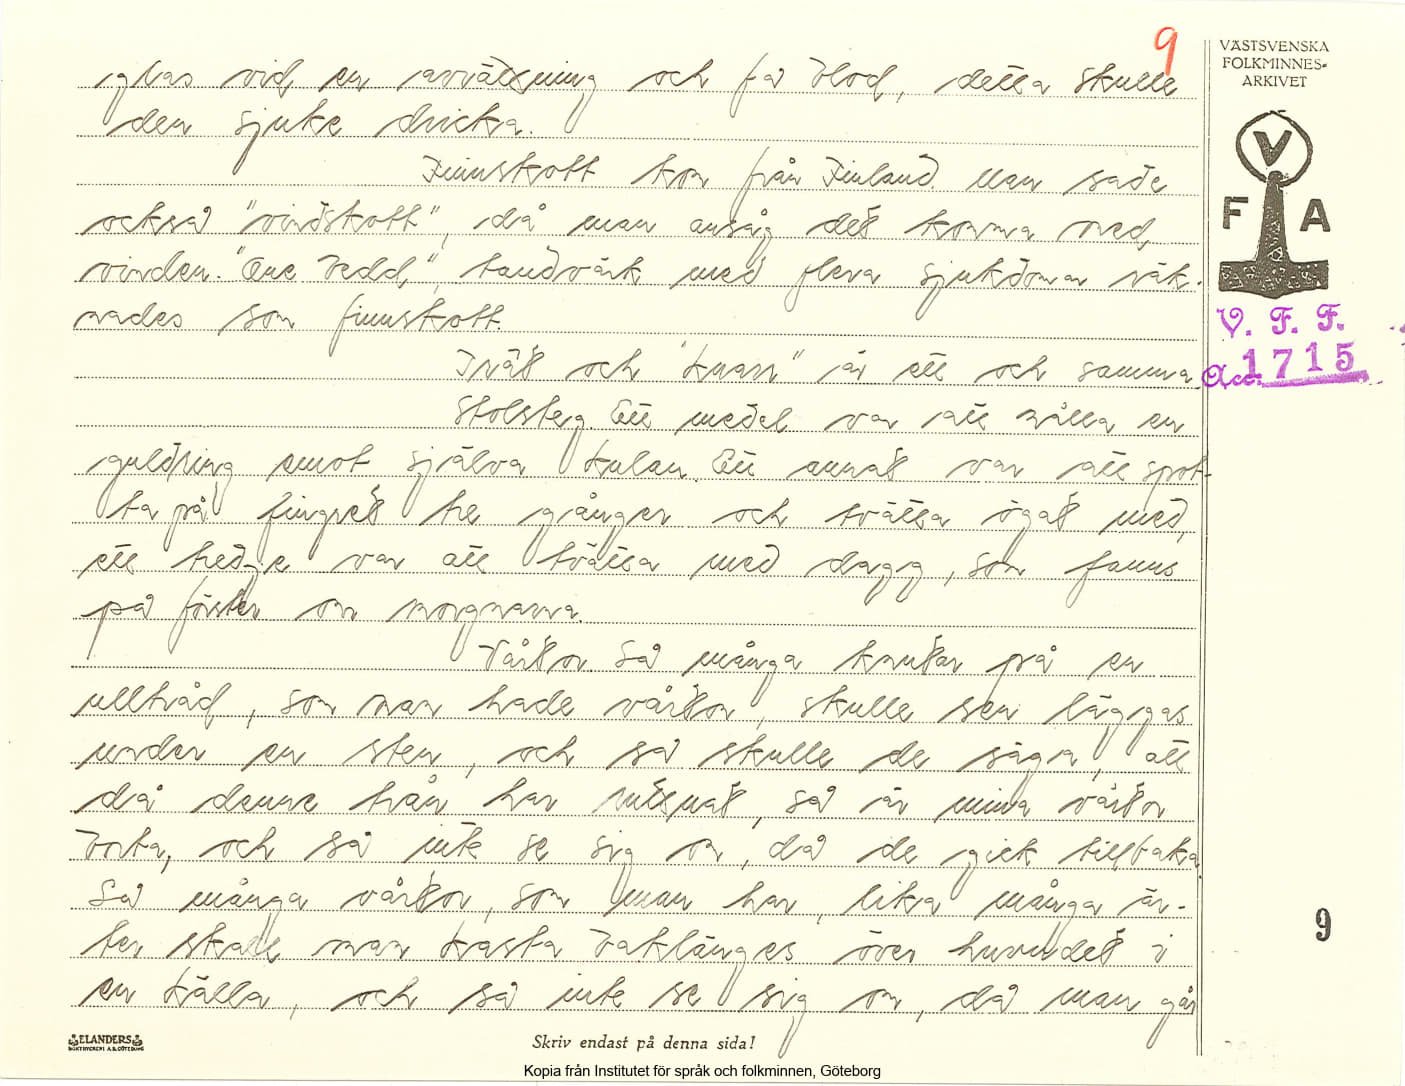 9
VÄSTSVENSKA
FOLKMINNES-
ARKIVET
V
F A
V. F. F.
Acc. 1715
glas vid en avrättning och få blod, detta skulle
den sjuke dricka.
Finnskott kom från Finland. Man sade
också "vindskott", då man ansåg det komma med
vinden. "One bedd," tandvärk med flera sjukdomar räk-
nades som finnskott.
Trät och "knarr" är ett och samma.
Stolsteg. Ett medel var att hålla en
guldring emot själva kulan. Ett annat var att spot-
ta på fingret tre gånger och tvätta ögat med,
ett tredje var att tvätta med dagg, som fanns
på fönster om morgnarna.
Vårtor. Så många knutar på en
ulltråd, som man hade vårtor, skulle sen läggas
under en sten, och så skulle de säga, att
då denne trån har ruttnat, så är mina vårtor
borta, och så inte se sig om, då de gick tillbaka.
Så många vårtor, som man har, lika många är-
ter skall man kasta baklänges över huvudet i
en källa, och så inte se sig om, då man går
9
ELANDERS
BOKTRYCKERI A.B. GÖTEBORG
Skriv endast på denna sida!
Kopia från Institutet för språk och folkminnen, Göteborg